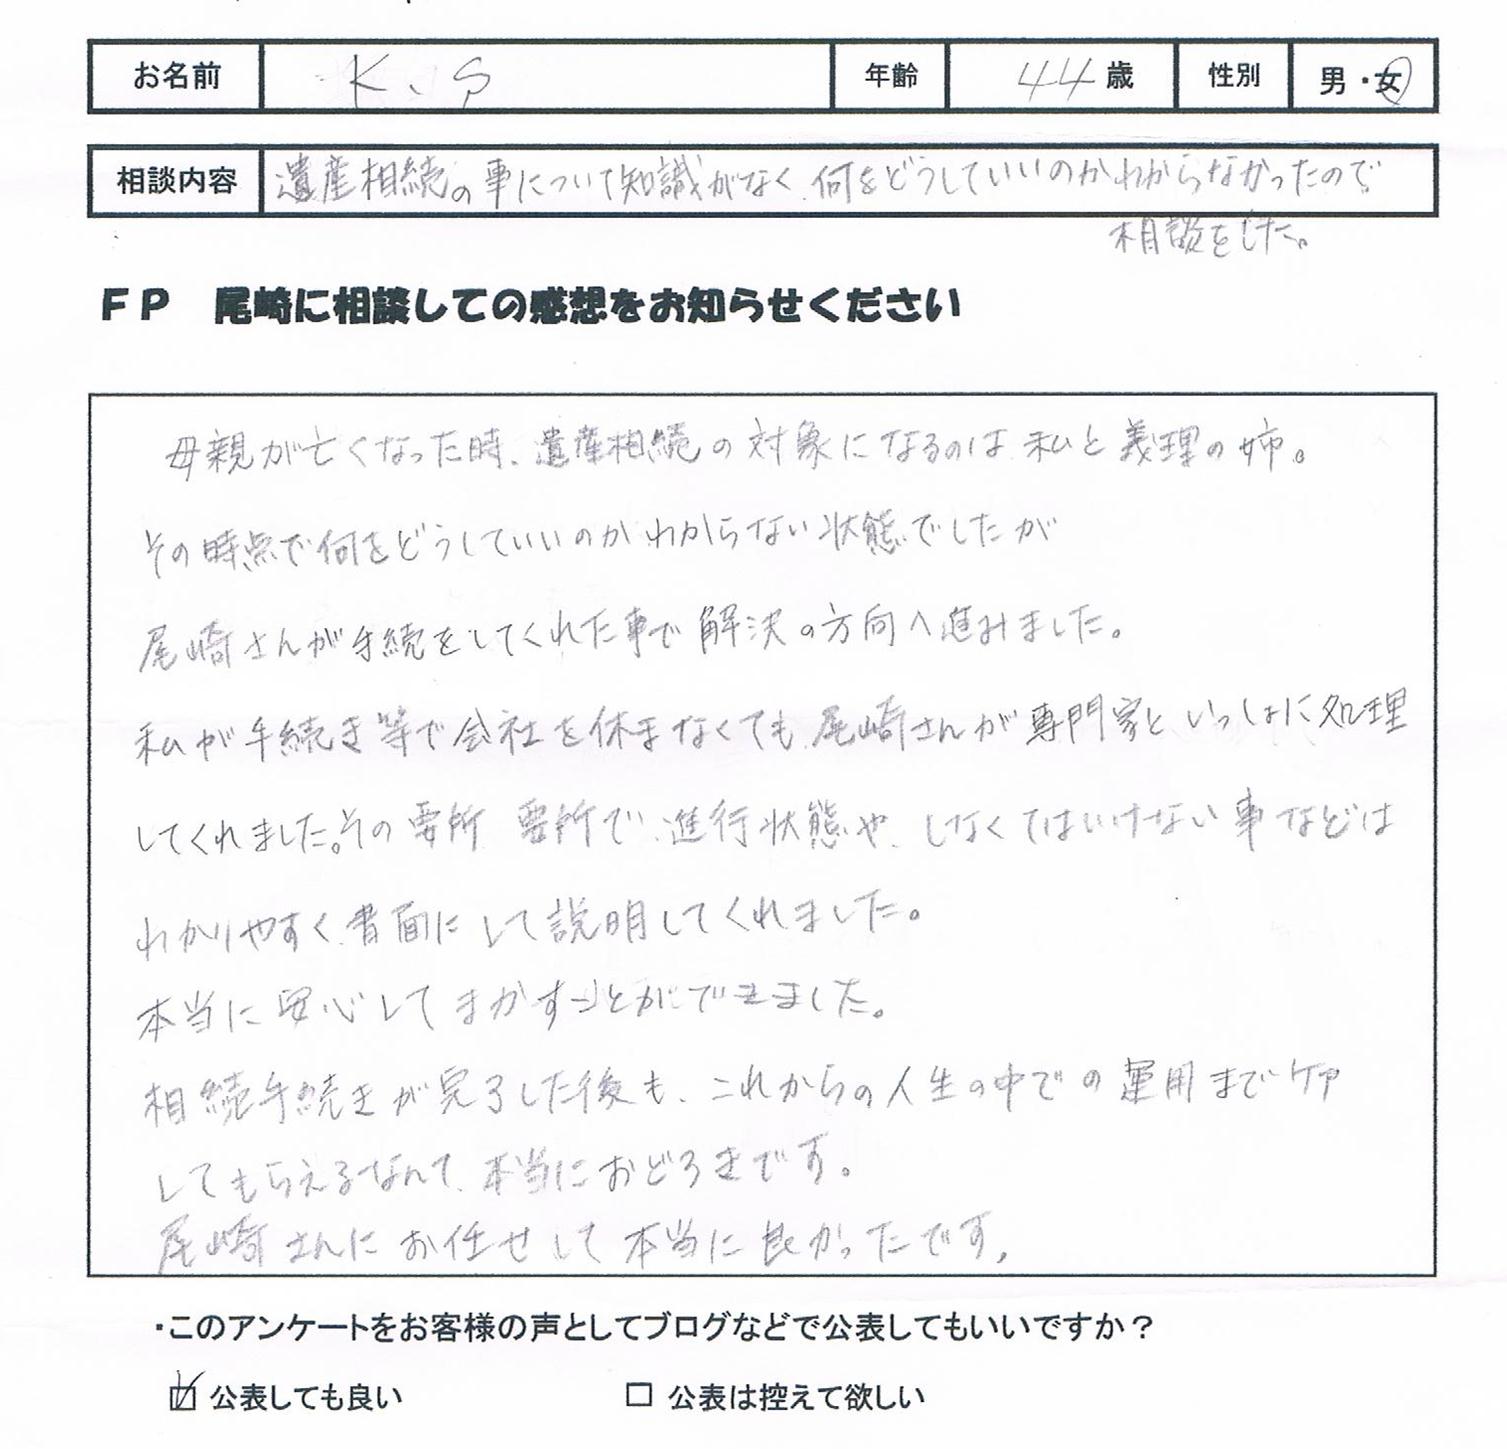 お名前 K、S 年齢 44歳 性別 男・女
相談内容 遺産相続の事について知識がなく、何をどうしていいのかわからなかったので
相談をした。
FP 尾崎に相談しての感想をお知らせください
母親が亡くなった時、遺産相続の対象になるのは私と義理の姉。
その時点で何をどうしていいのかわからない状態でしたが
尾崎さんが手続をしてくれた事で解決の方向へ進みました。
私が手続き等で会社を休まなくても、尾崎さんが専門家といっしょに処理
してくれました。その要所要所で、進行状態や、しなくてはいけない事などは
わかりやすく、書面にして説明してくれました。
本当に安心してまかすことができました。
相続手続きが完了した後も、これからの人生の中での運用までケア
してもらえるなんて、本当におどろきです。
尾崎さんにお任せして本当に良かったです。
・このアンケートをお客様の声としてブログなどで公表してもいいですか？
☑ 公表しても良い □ 公表は控えて欲しい